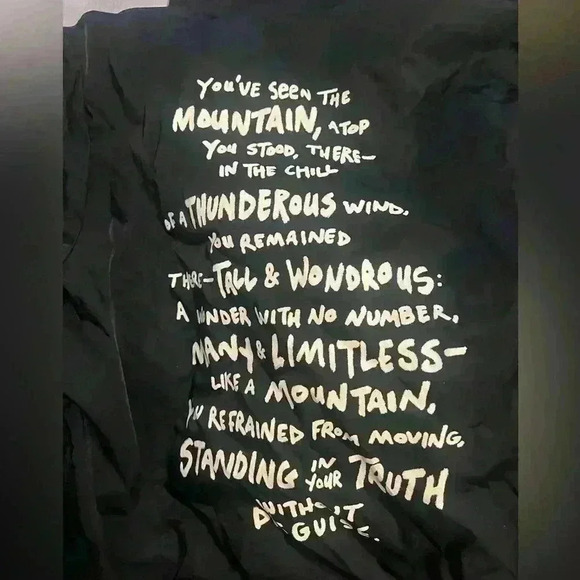 YOU'VE SEEN THE
MOUNTAIN, ATOP
YOU STOOD, THERE—
IN THE CHILL
OF A THUNDEROUS WIND.
YOU REMAINED
THERE—TALL & WONDROUS:
A WONDER WITH NO NUMBER,
MANY & LIMITLESS—
LIKE A MOUNTAIN,
YOU REFRAINED FROM MOVING,
STANDING IN YOUR TRUTH
WITHOUT
DISGUISE.